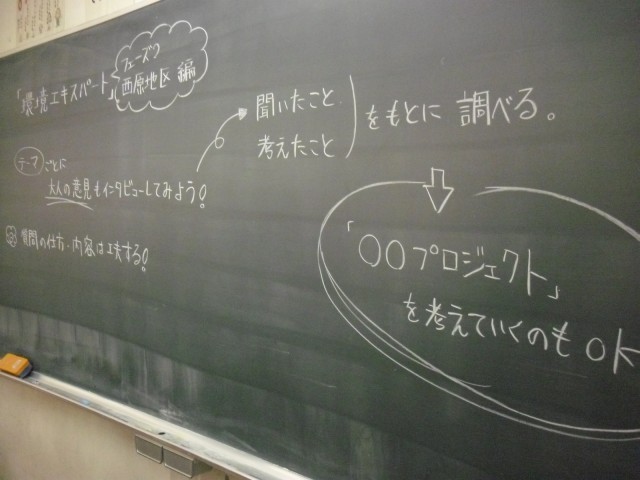 「環境エキスパート」
フェーズ0
西原地区 編
テーマごとに
大人の意見もインタビューしてみよう!
質問の仕方・内容は工夫する!
聞いたこと
考えたこと
をもとに 調べる。
「〇〇プロジェクト」
を考えていくのもOK